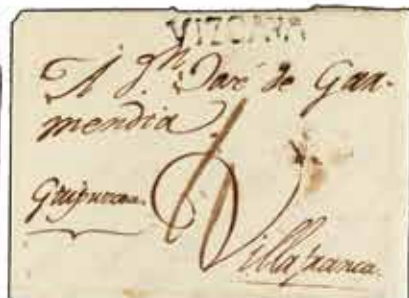 VIZCAYA
A Dn Jose de Gara-
mendia
Guipuzcoa
Villafranca